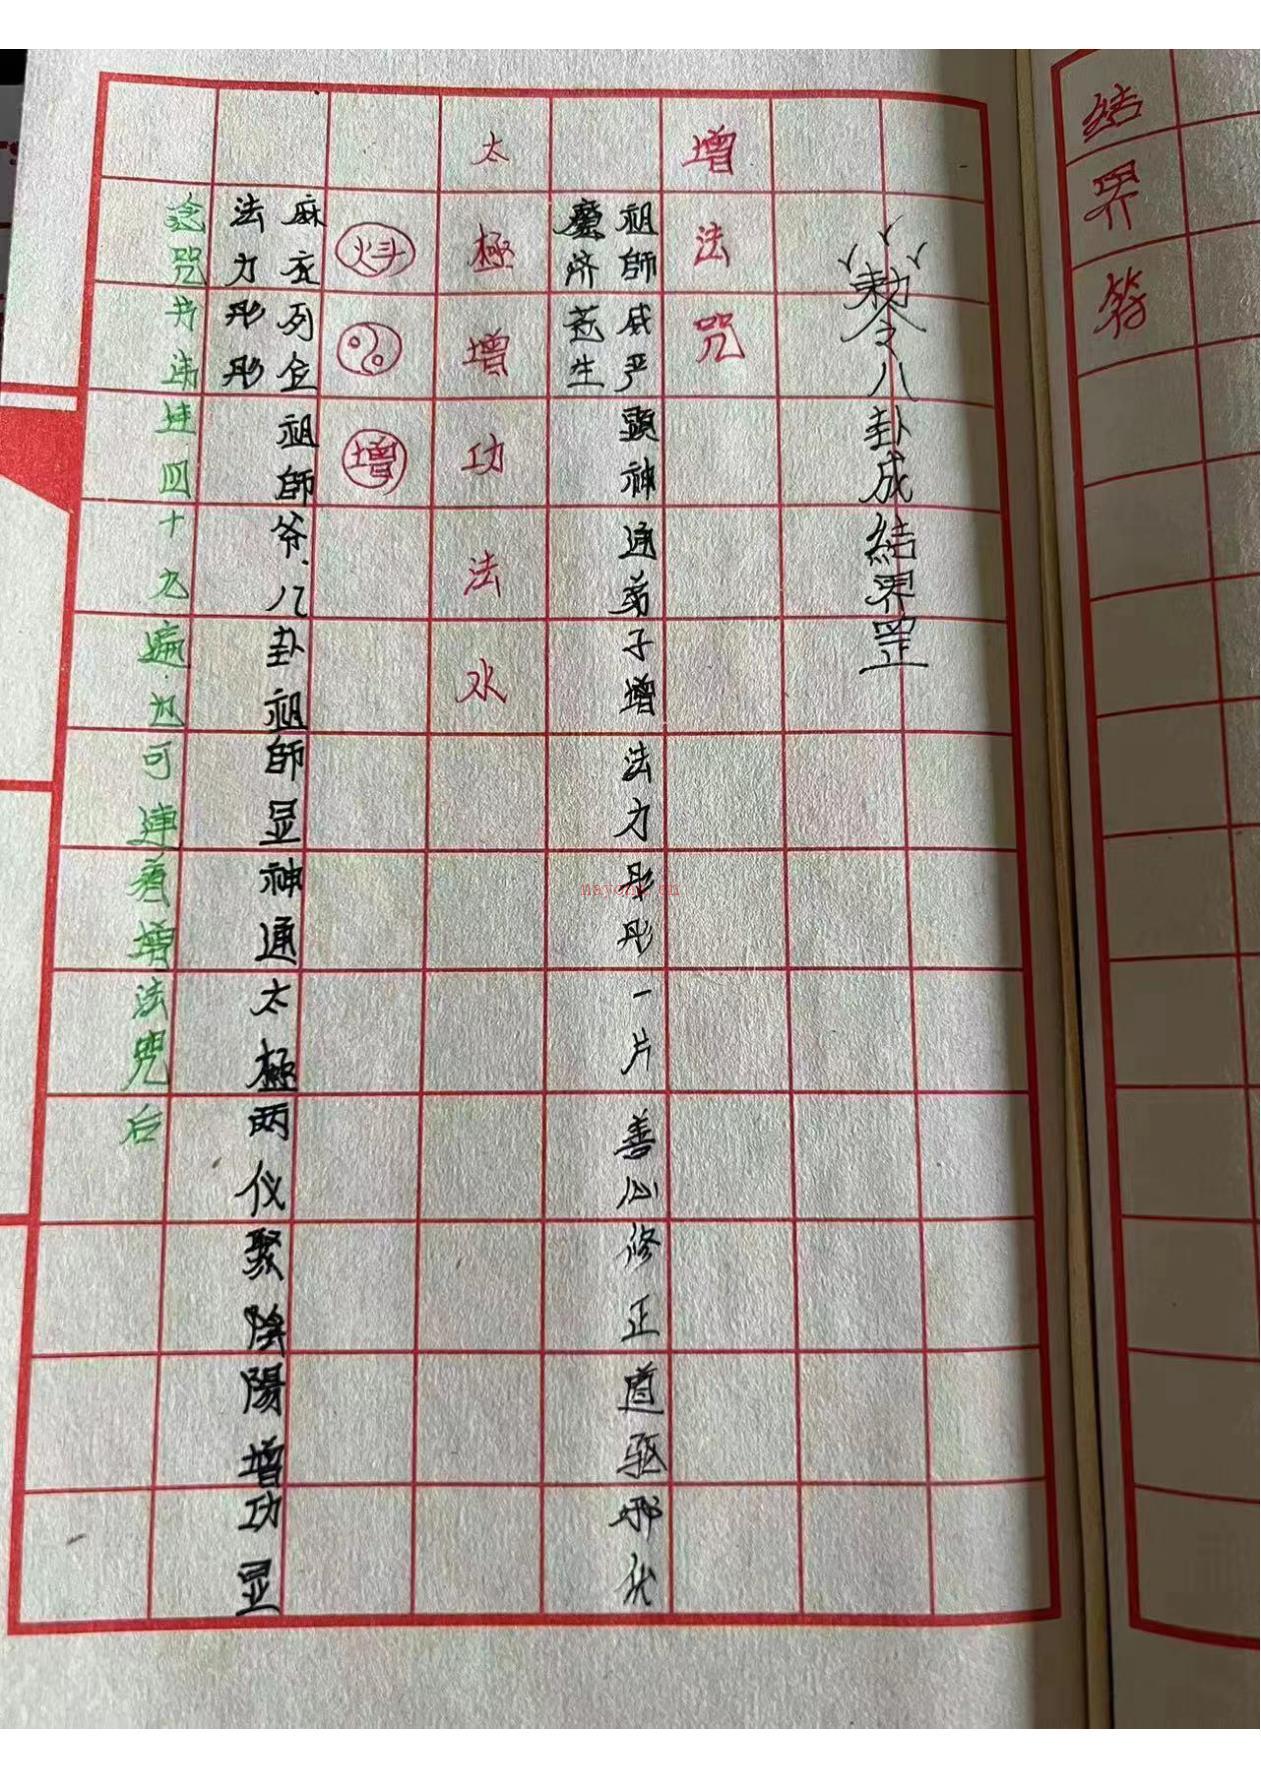 结界符
敕令八卦成結界罡
增法咒
祖師威严顕神通弟子增法力彤彤一片善心修正道驱邪伏
魔济苍生
太極增功法水
增
麻衣列位祖師爷八卦祖師显神通太極两仪聚陰陽增功显
法力彤彤
念咒书讳连四十九遍也可連着增法咒后
nayona.cn